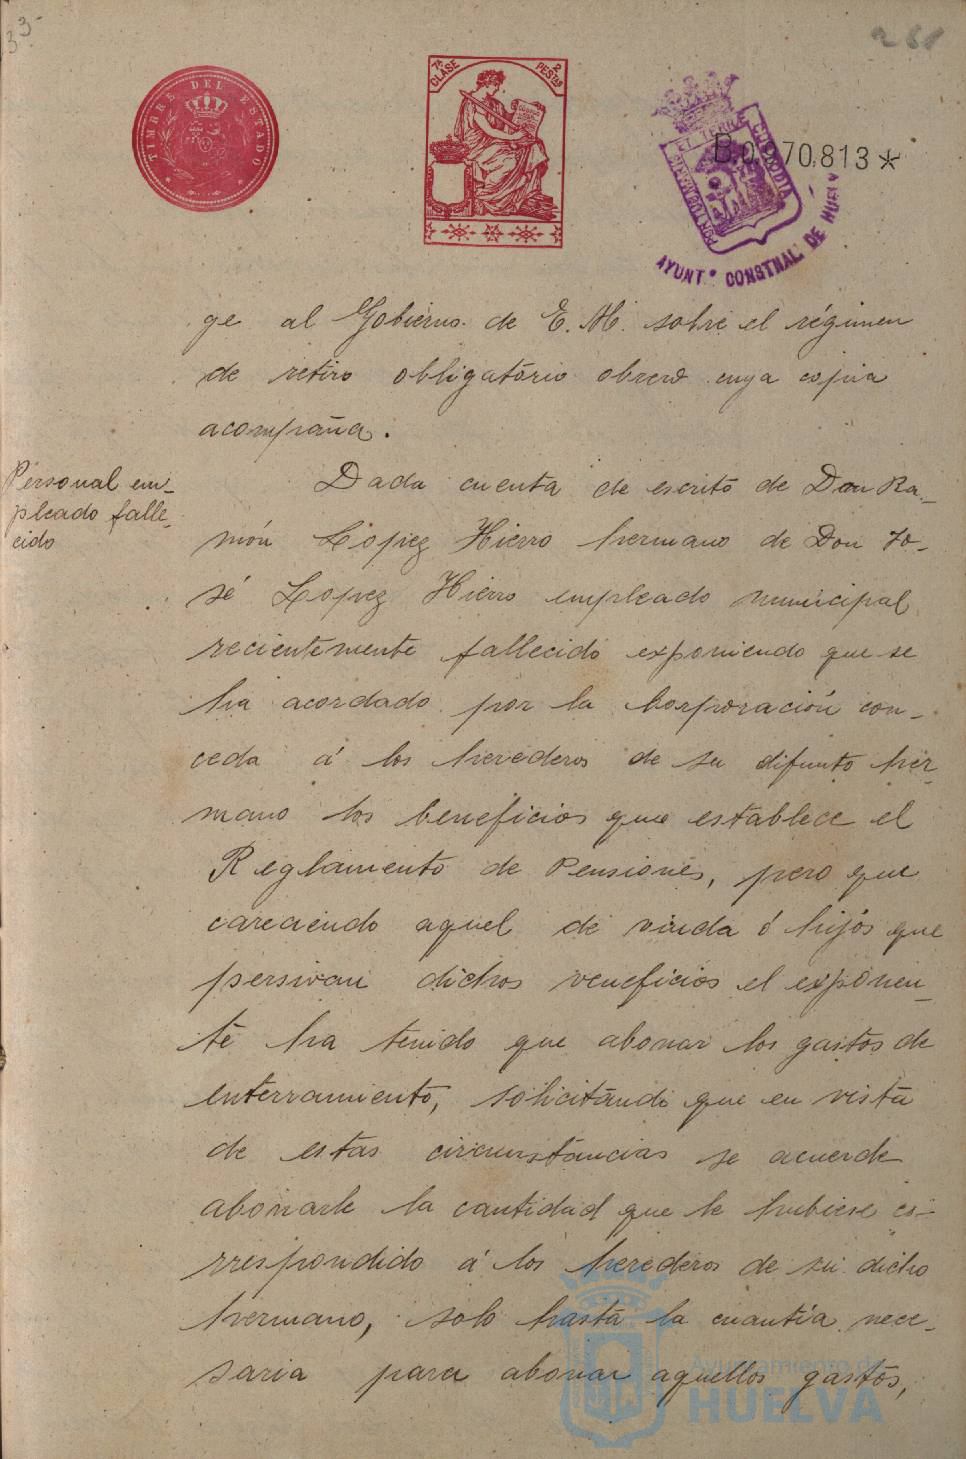 33
281
TIMBRE DEL ESTADO
7ª CLASE
2 PESETAS
B.0.970.813*
PORTUM MARIS ET TERRE CUSTODIA
AYUNTº CONSTNAL DE HUELV
ge al Gobierno de E. M. sobre el régimen
de retiro obligatório obrero cuya copia
acompaña.
Personal em-
pleado falle-
cido
Dada cuenta de escrito de Don Ra-
món Lopez Hierro hermano de Don Jo-
sé Lopez Hierro empleado municipal
recientemente fallecido exponiendo que se
ha acordado por la Corporación con-
ceda á los herederos de su difunto her-
mano los beneficios que establece el
Reglamento de Pensiones, pero que
careciendo aquel de viuda ó hijos que
persivan dichos veneficios el exponen-
te ha tenido que abonar los gastos de
enterramiento, solicitando que en vista
de estas circunstancias se acuerde
abonarle la cantidad que le hubiese co-
rrespondido á los herederos de su dicho
hermano, solo hasta la cuantía nece-
saria para abonar aquellos gastos,
Ayuntamiento de
HUELVA